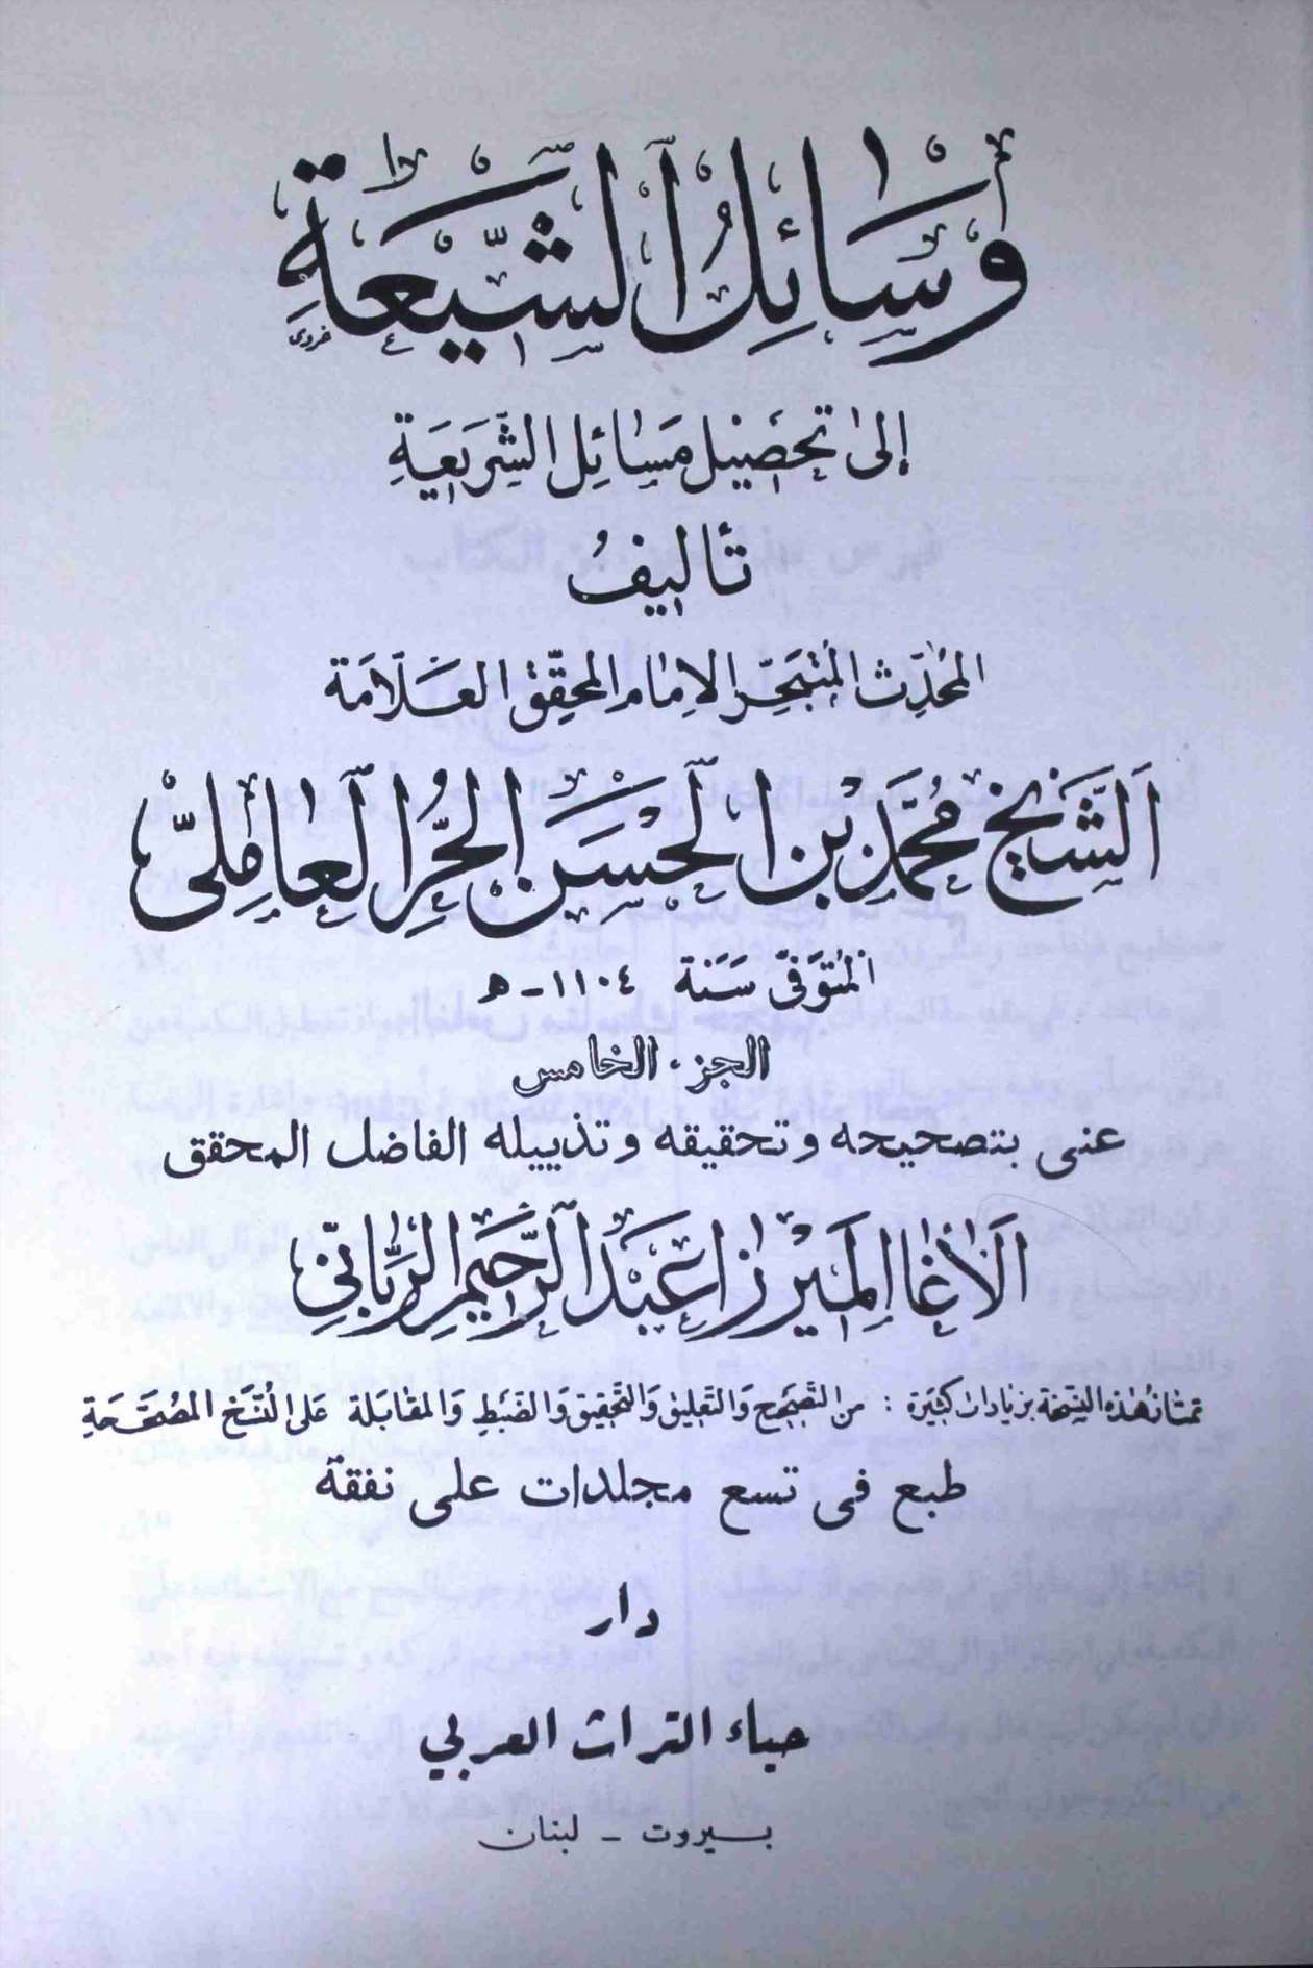 وَسَائِلُ الشِّيعَةِ
إلىٰ تحصيل مسائل الشريعة
تأليفُ
المحدّث المتبحّر الامام المحقّق العلّامة
الشّيخ محمّد بن الحسن الحُرّ العاملىّ
المتوفىّ سنة ١١٠٤ - ه
الجزء الخامس
عنى بتصحيحه و تحقيقه و تذييله الفاضل المحقق
الاغا الميرزا عبد الرّحيم الربّانىّ
تمتاز هٰذه النسخة بزيادات كثيرة : من التّصحيح والتّعليق والتّحقيق والضبط والمقابلة على النّسخ المصحّحة
طبع فى تسع مجلدات على نفقة
دار
حياء التراث العربي
بيروت - لبنان